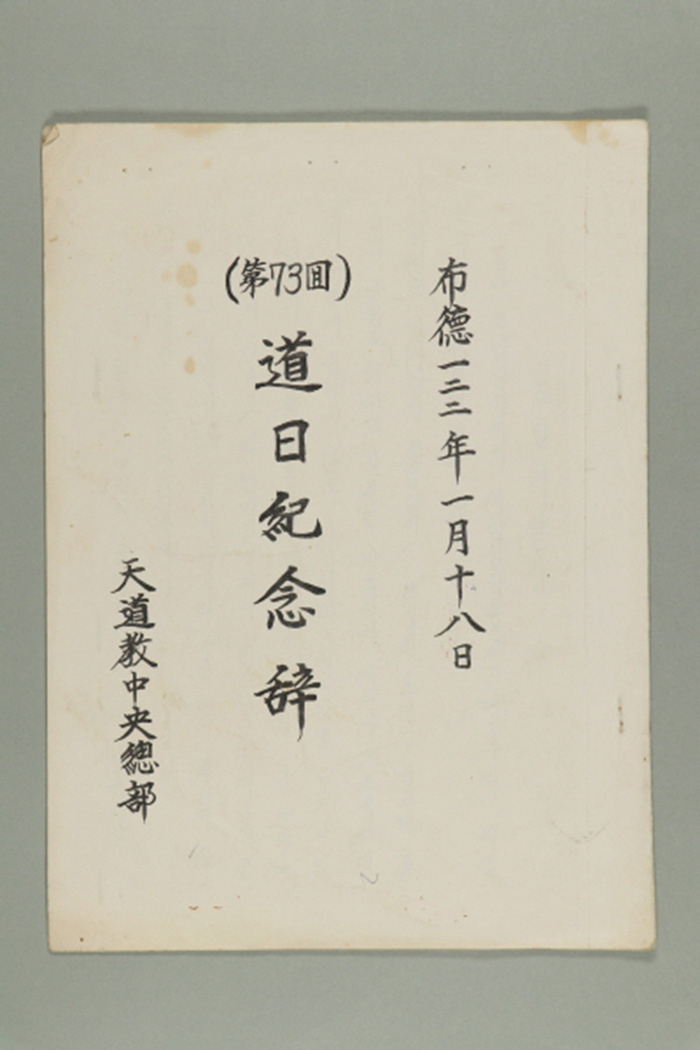 布德一二二年一月十八日
(第73回)
道日紀念辞
天道教中央總部